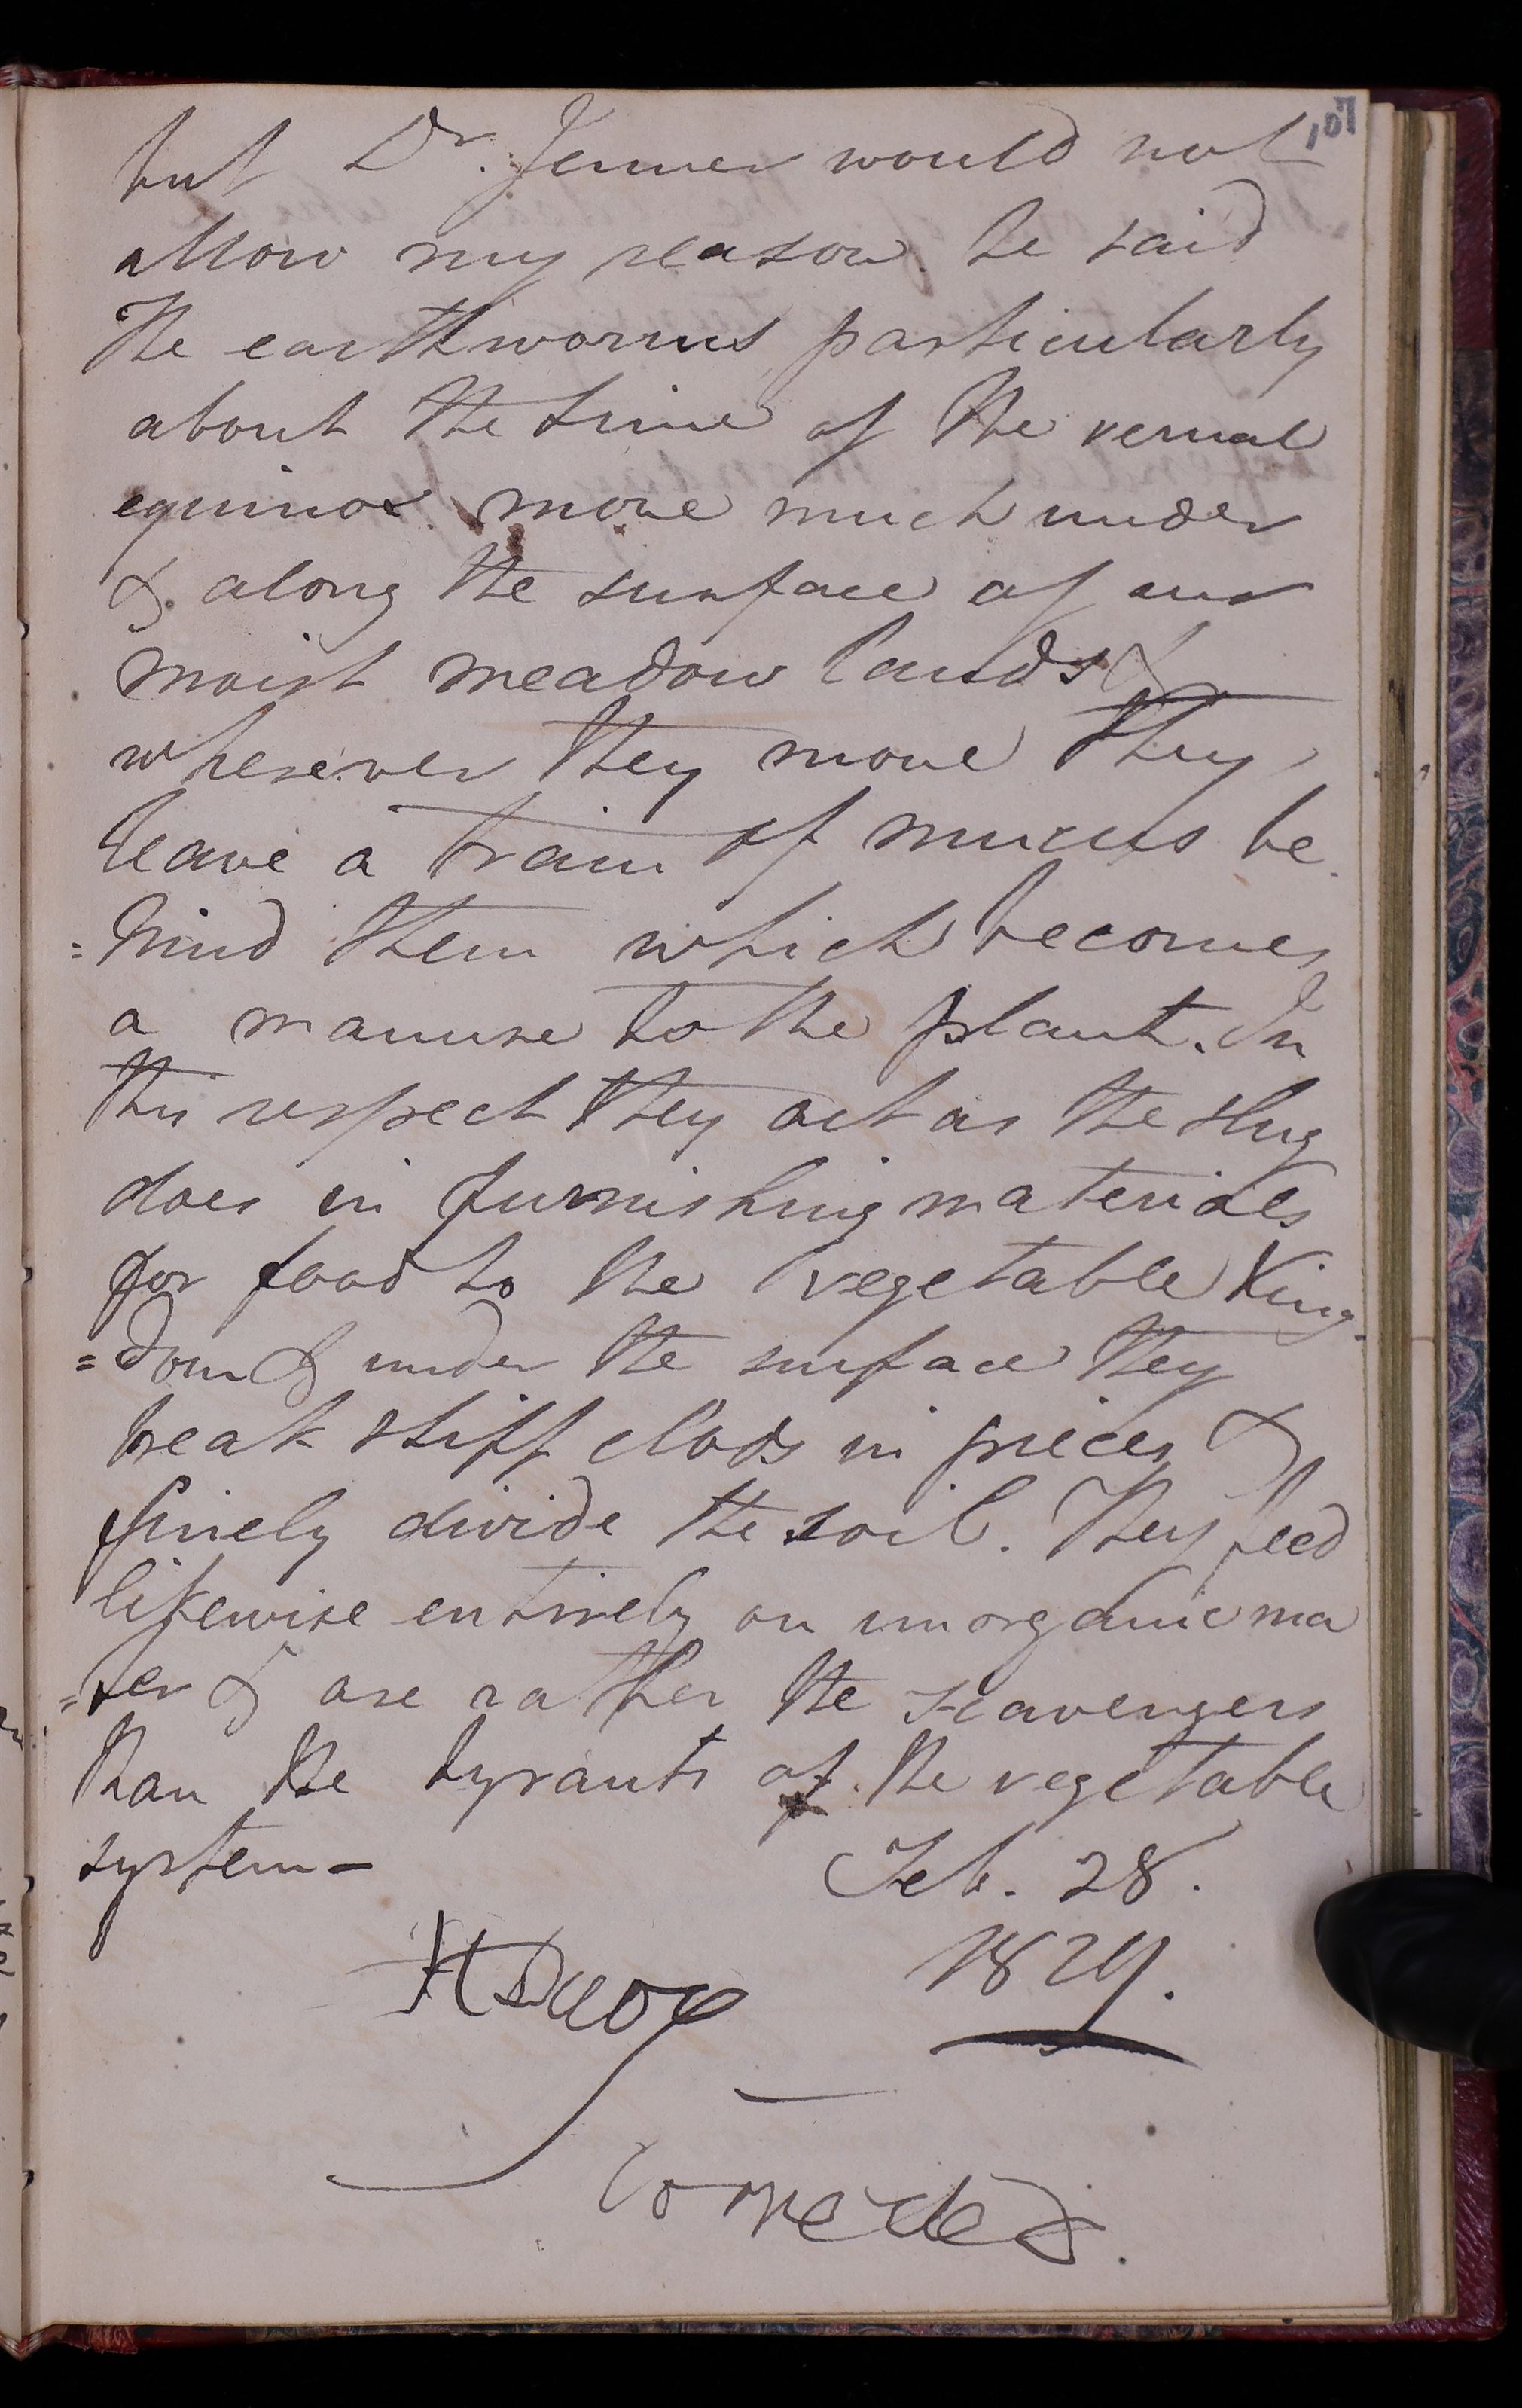 107
but Dr. Jenner would not
allow my reason. he said
the earthworms particularly
about the time of the vernal
equinox move much under
& along the surface of our
moist meadow lands &
wherever they move they
leave a train of mucus be
=hind them which becomes
a manure to the plant. In
this respect they act as the slug
does in furnishing materials
for food to the vegetable King
=dom & under the surface they
break stiff clods in pieces &
finely divide the soil. They feed
likewise entirely on inorganic ma
=ter & are rather the scavengers
than the tyrants of the vegetable
system –
Feb. 28.
1829.
H Davy
Corrected.